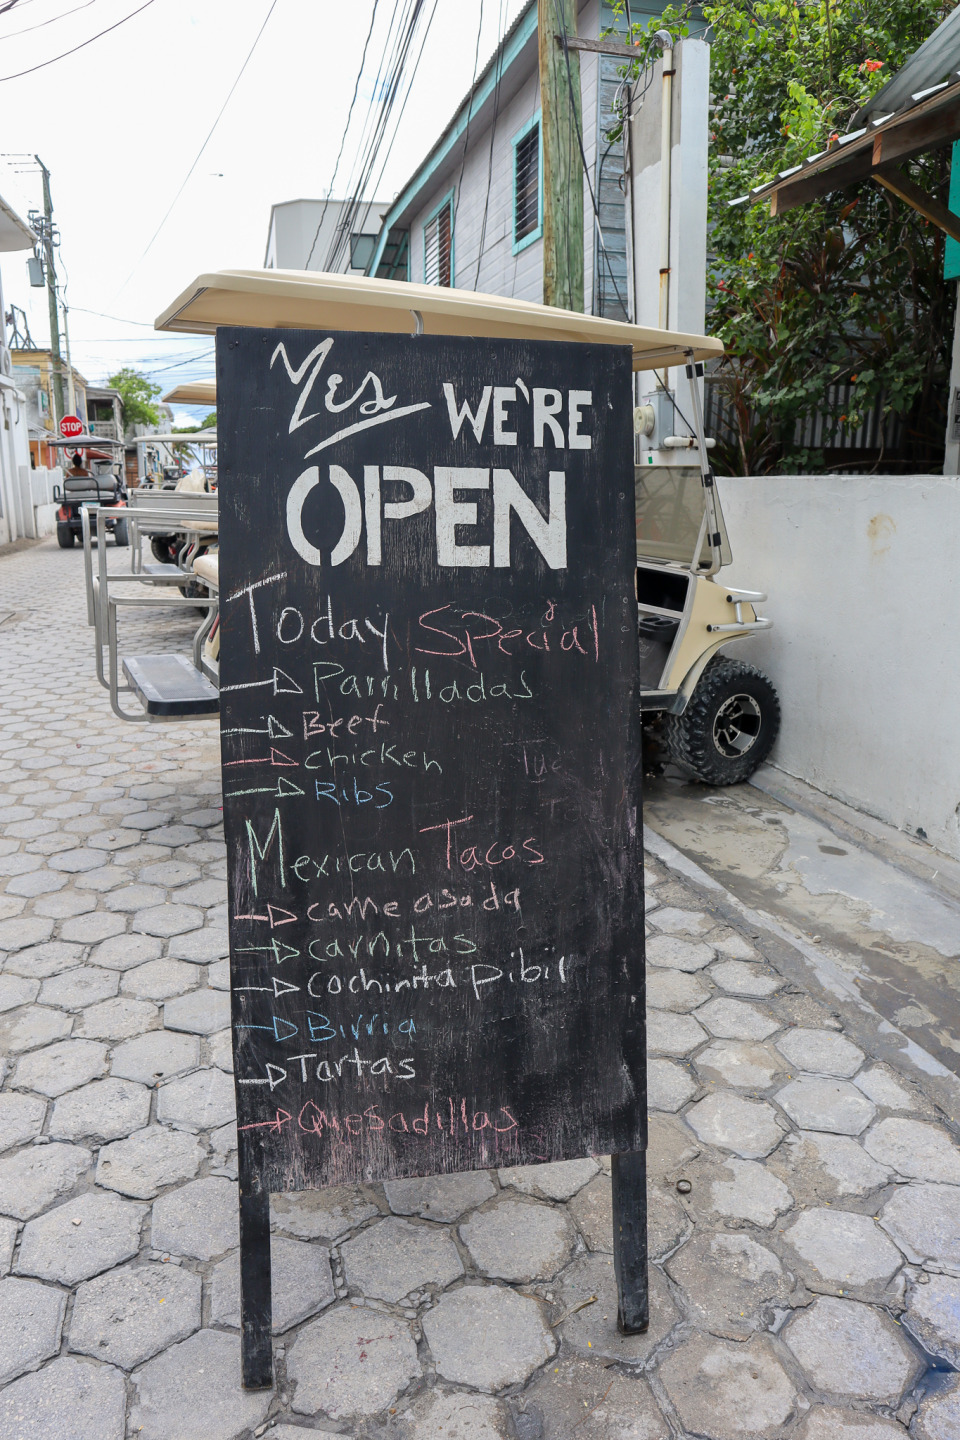 STOP
Yes WE'RE
OPEN
Today Special
Parrilladas
Beef
chicken
Ribs
Mexican Tacos
carne asada
carnitas
cochinita pibil
Birria
Tortas
Quesadillas